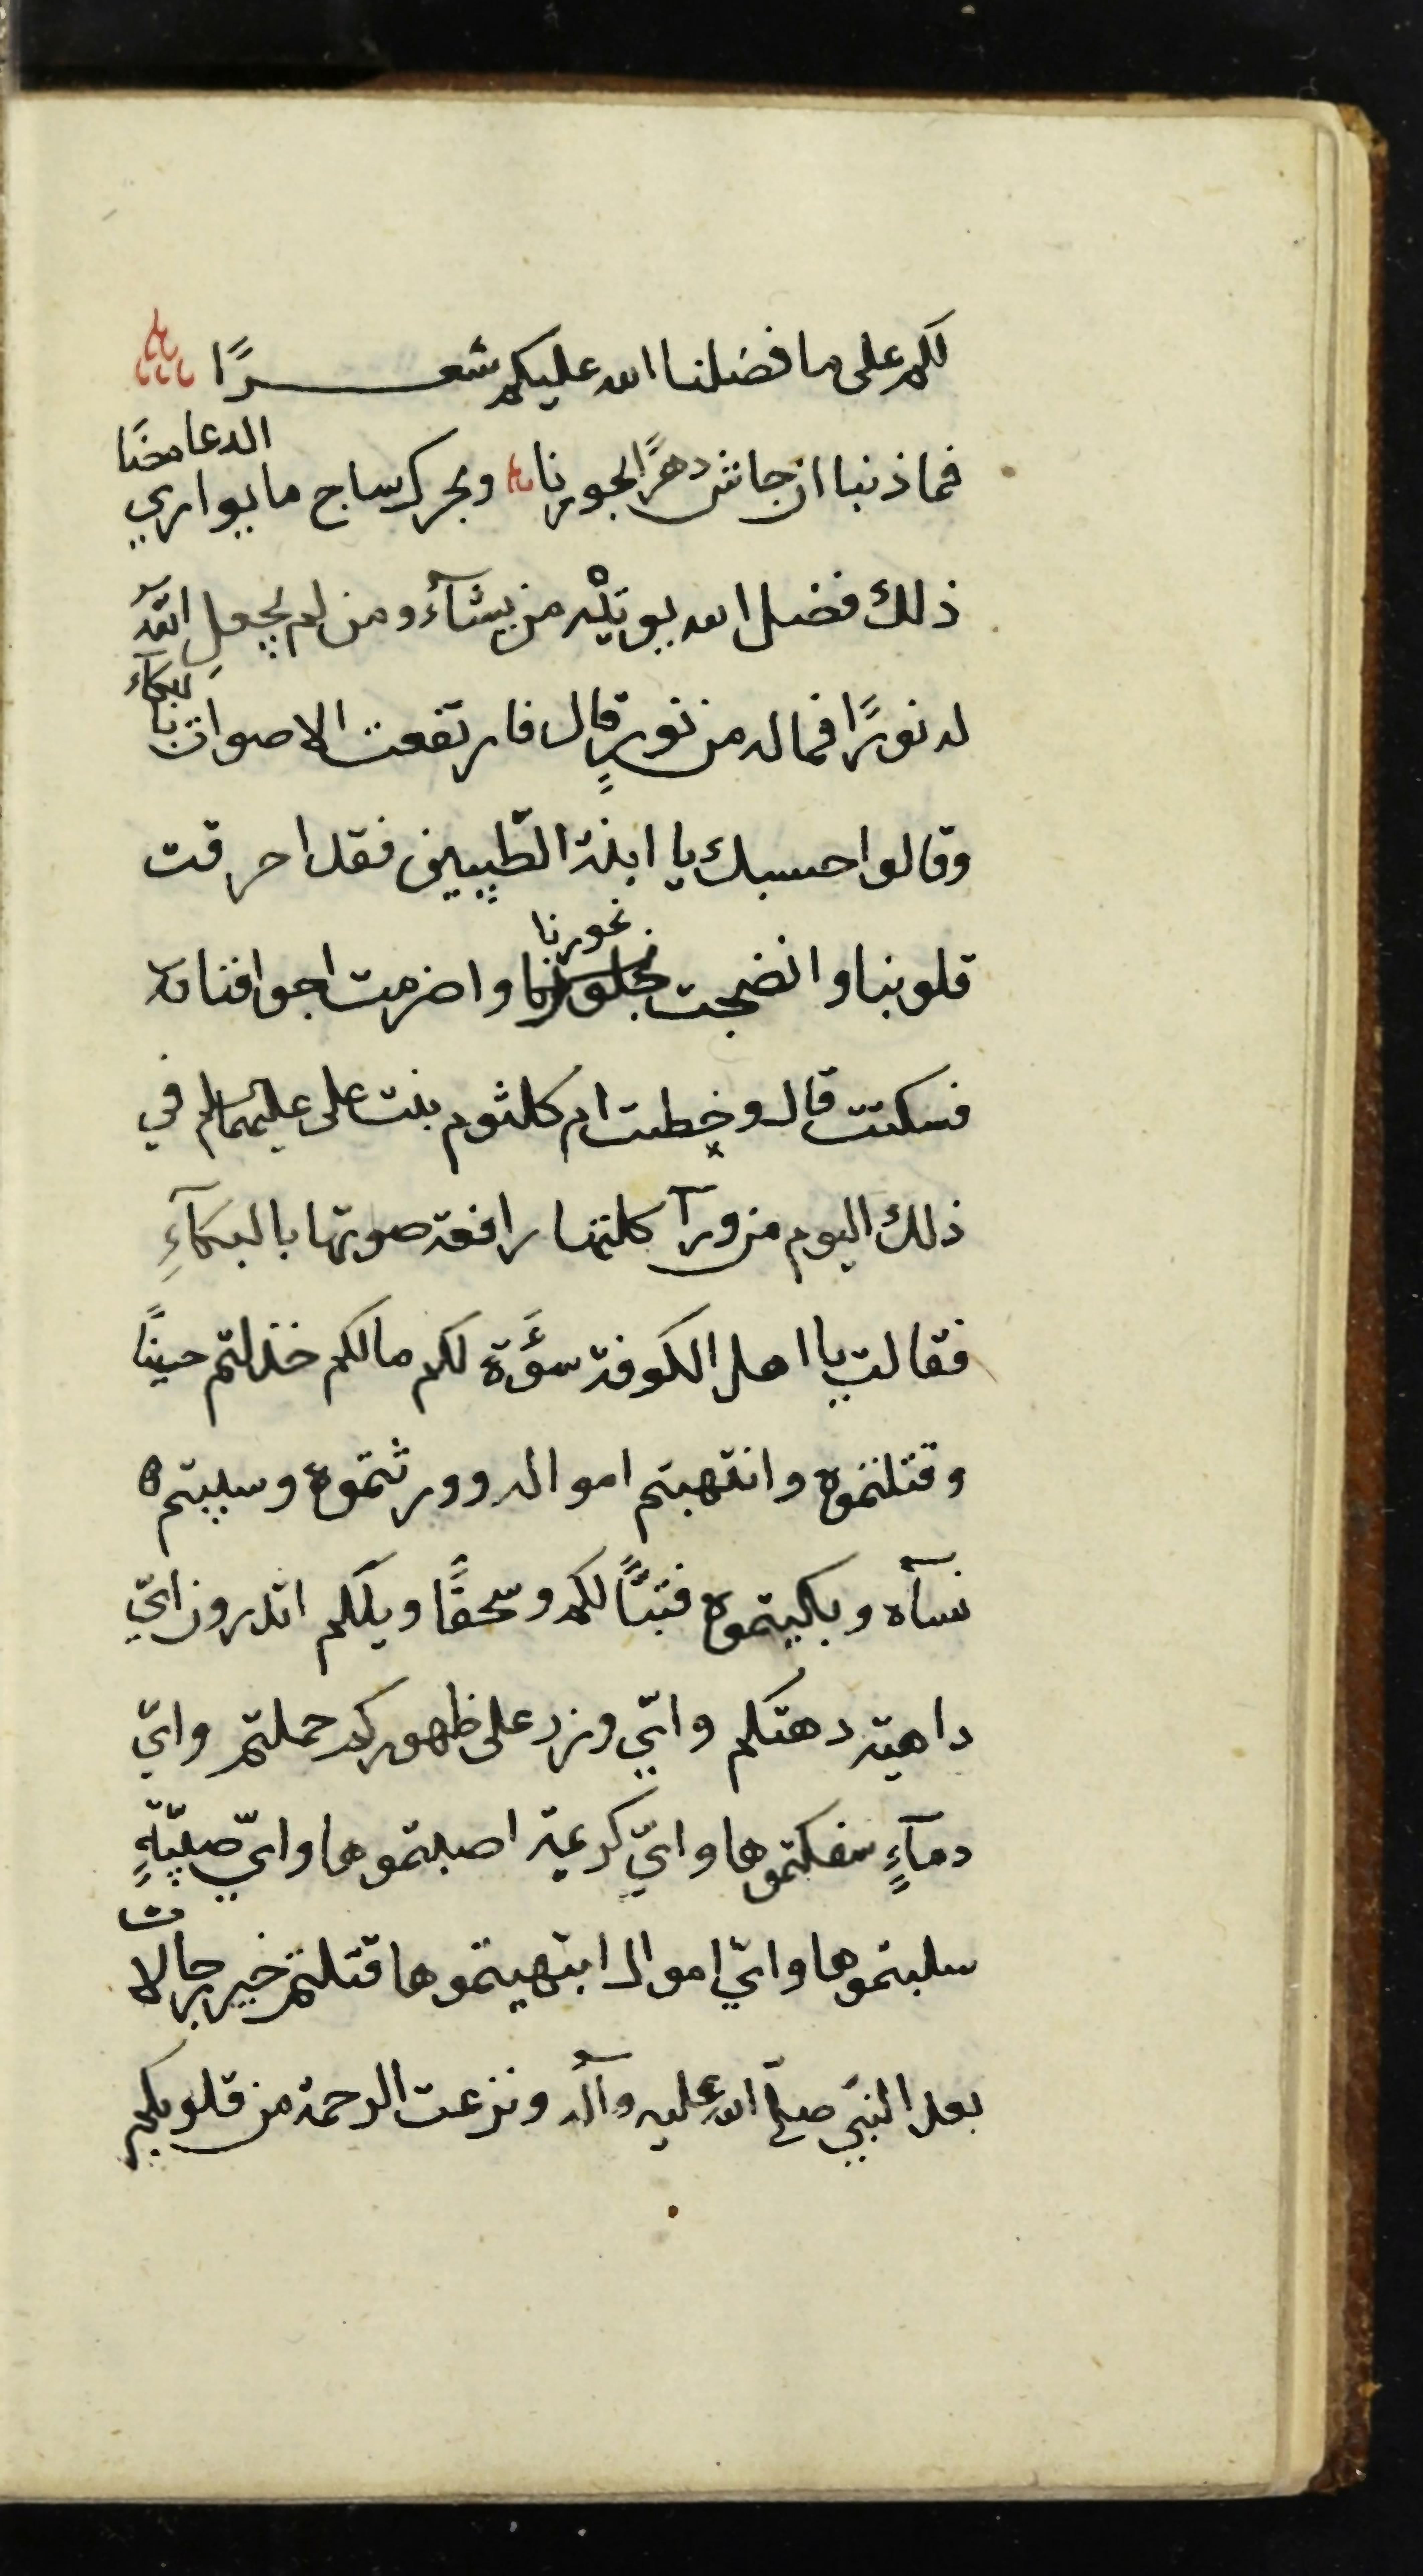 لكم على ما فضلنا الله عليكم شعرًا
فما ذنبنا ان جاش دهرًا بحورنا وبحرك ساج ما يواري الدعامصا
ذلك فضل الله يوتيه من يشآء ومن لم يجعل الله
له نورًا فما له من نورٍ قال فارتفعت الاصوات بالبكآء
وقالوا حسبك يا ابنة الطّيبين فقد احرقت
قلوبنا وانضجت نحورنا واضرمت اجوافنا
فسكتت قال وخطبت ام كلثوم بنت على عليهما السلم في
ذلك اليوم من ورآ كلتها رافعة صوتها بالبكآءِ
فقالت يا اهل الكوفة سوَءة لكم مالكم خذلتم حسينًا
وقتلتموه وانتهبتم امواله وورثتموه وسبيتم
نسآه وبكيتموه فتبًّا لكم وسحقًا ويلكم اتدرون ايّ
داهية دهتكم وايّ وزر على ظهوركم حملتم وايّ
دمآءٍ سفكتموها وايّ كريمة اصبتموها وايّ صبيّةٍ
سلبتموها وايّ اموال انتهبتموها قتلتم خير رجالات
بعد النبيّ صلّى الله عليه وآله ونزعت الرحمة من قلوبكم